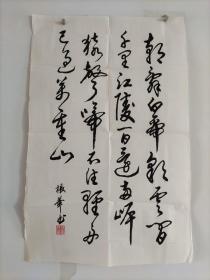 朝辭白帝彩雲間
千里江陵一日還兩岸
猿聲啼不住輕舟
已過萬重山
振華書